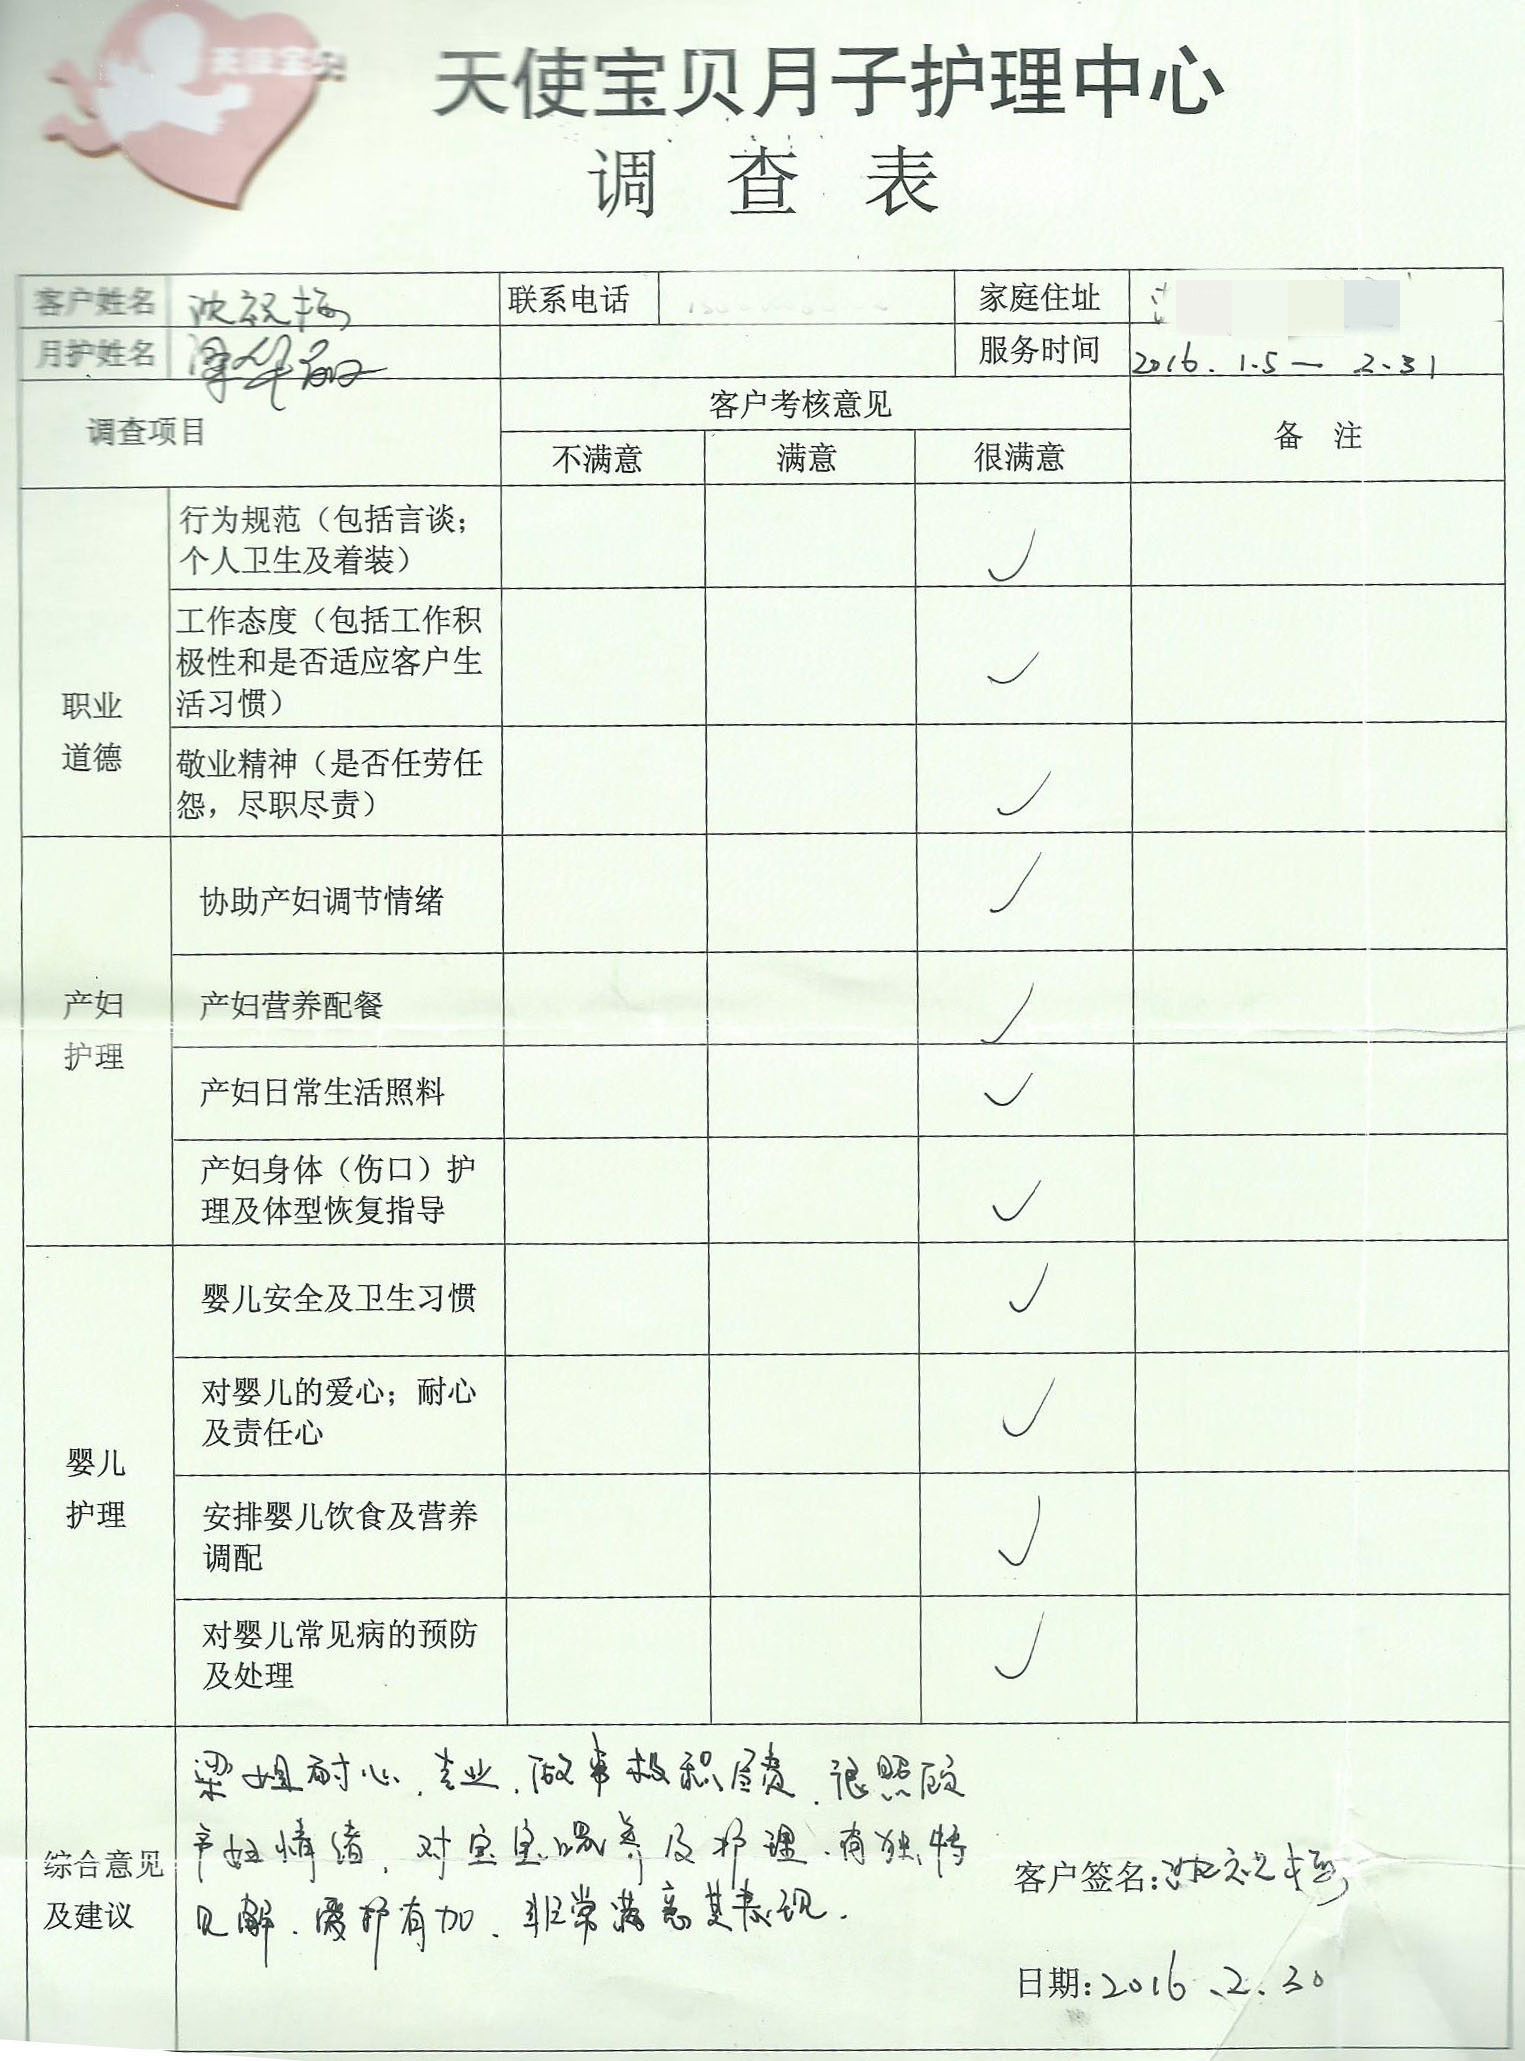 天使宝贝月子护理中心
调 查 表
客户姓名 沈祝梅 联系电话 家庭住址
月护姓名 服务时间 2016.1.5— 2.31
调查项目 客户考核意见 备 注
不满意 满意 很满意
职业
道德
行为规范（包括言谈；
个人卫生及着装） ✓
工作态度（包括工作积
极性和是否适应客户生
活习惯） ✓
敬业精神（是否任劳任
怨，尽职尽责） ✓
产妇
护理
协助产妇调节情绪 ✓
产妇营养配餐 ✓
产妇日常生活照料 ✓
产妇身体（伤口）护
理及体型恢复指导 ✓
婴儿
护理
婴儿安全及卫生习惯 ✓
对婴儿的爱心；耐心
及责任心 ✓
安排婴儿饮食及营养
调配 ✓
对婴儿常见病的预防
及处理 ✓
综合意见
及建议
梁姐耐心.专业.做事积极尽责.很照顾
产妇情绪.对宝宝喂养及护理.有独特
见解.爱护有加.非常满意其表现.
客户签名:沈祝梅
日期:2016.2.30